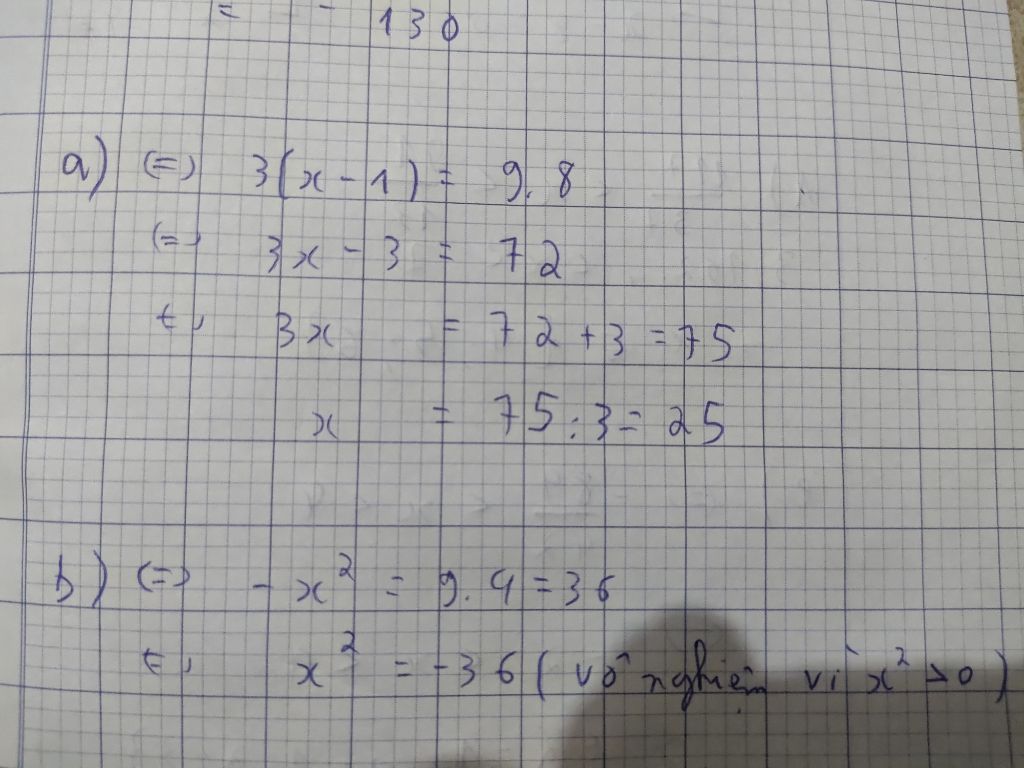 = - 130
a) (=) 3(x - 1) = 9.8
(=) 3x - 3 = 72
(=) 3x = 72 + 3 = 75
x = 75 : 3 = 25
b) (=) - x² = 9.4 = 36
(=) x² = -36 (vô nghiệm vì x² > 0)